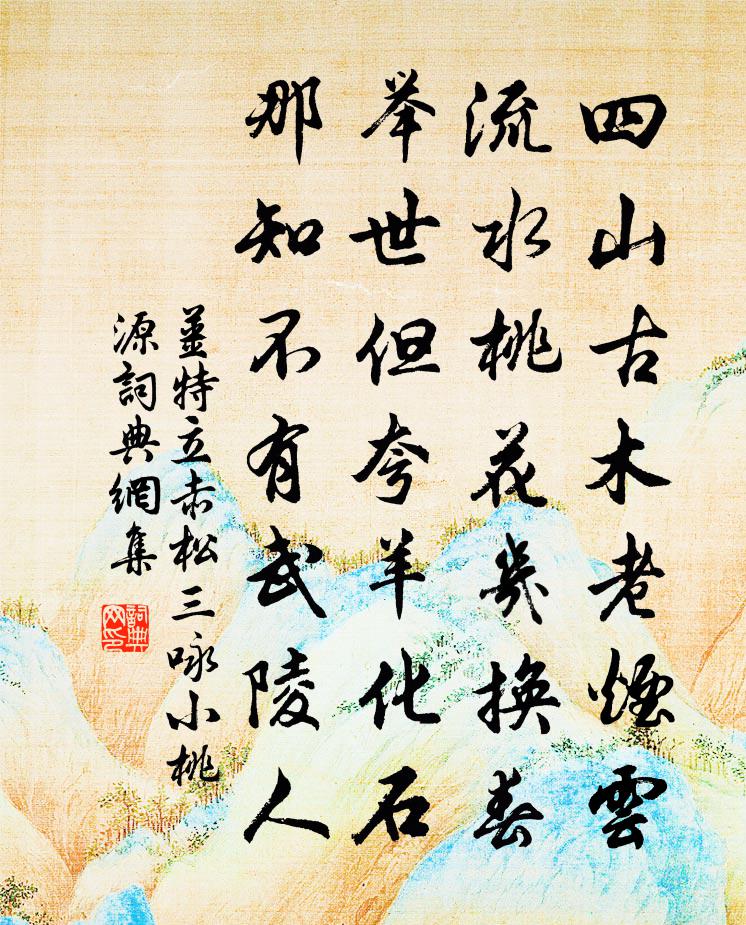 四山古木老煙雲
流水桃花幾換春
举世但夸羊化石
那知不有武陵人
薑特立赤松三咏小桃
源詞典網集